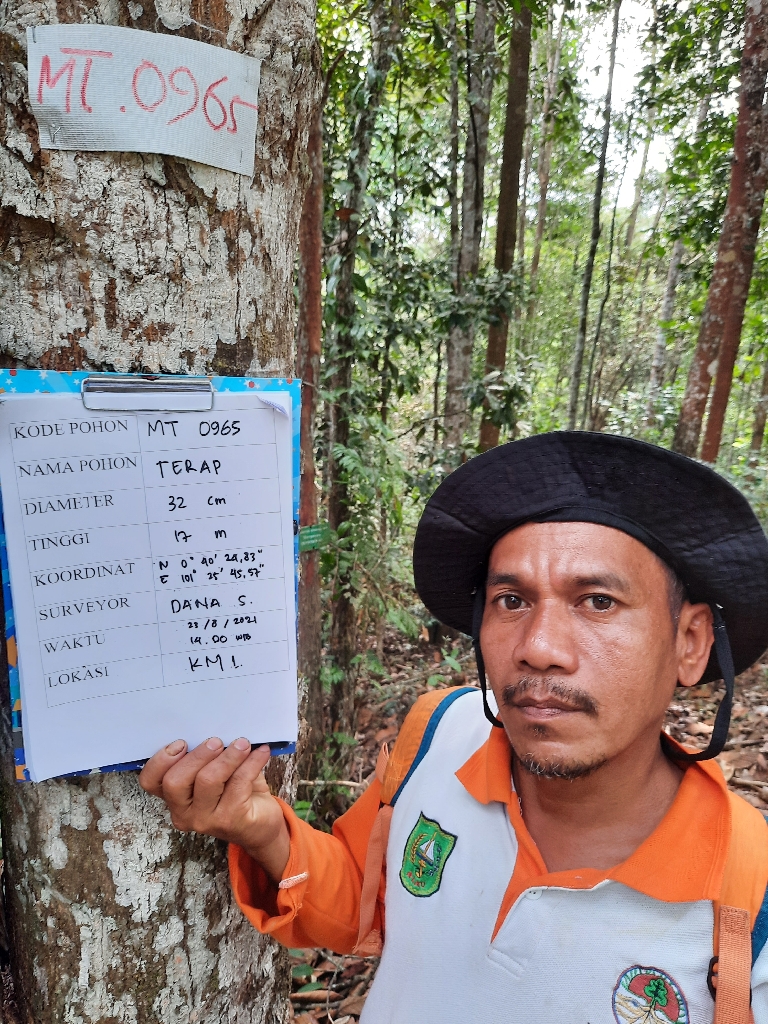 MT.0965
KODE POHON MT 0965
NAMA POHON TERAP
DIAMETER 32 cm
TINGGI 17 m
KOORDINAT N 0° 40' 24,83"
E 101° 25' 45,57"
SURVEYOR DANA S.
WAKTU 28/8/2021
14.00 WIB
LOKASI KM 1.